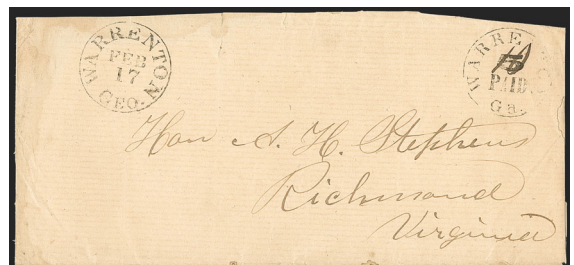 WARRENTON
FEB
17
GEO.
WARRE
PAID
Ga.
Hon A. H. Stephens
Richmond
Virginia